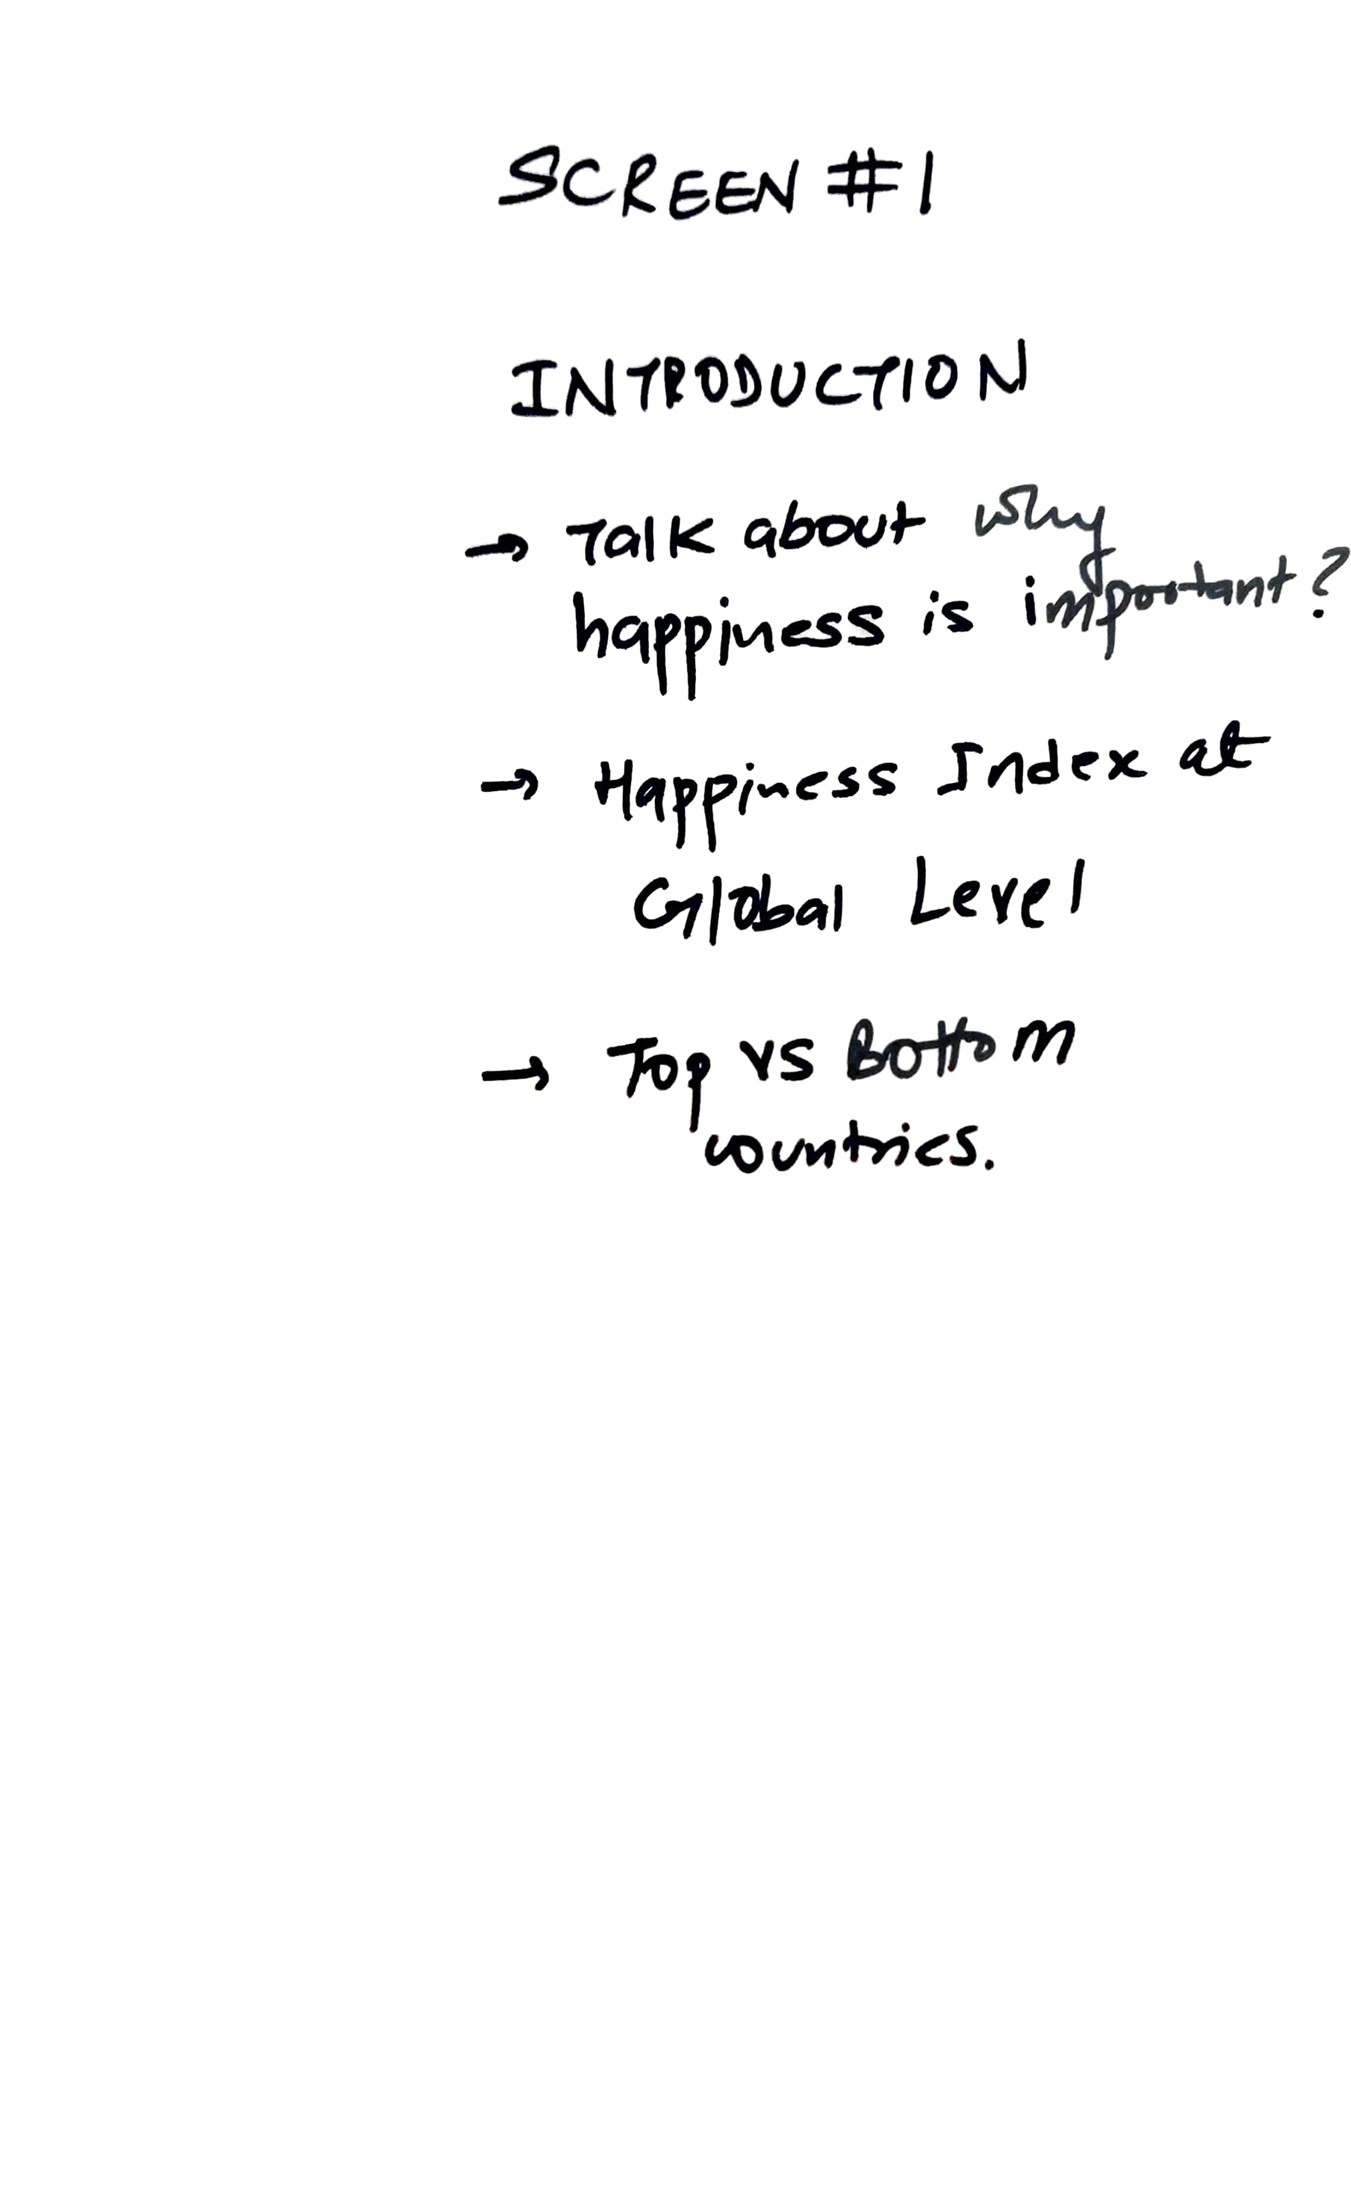 SCREEN #1
INTRODUCTION
→ Talk about why
happiness is important?
→ Happiness Index at
Global Level
→ Top vs Bottom
countries.